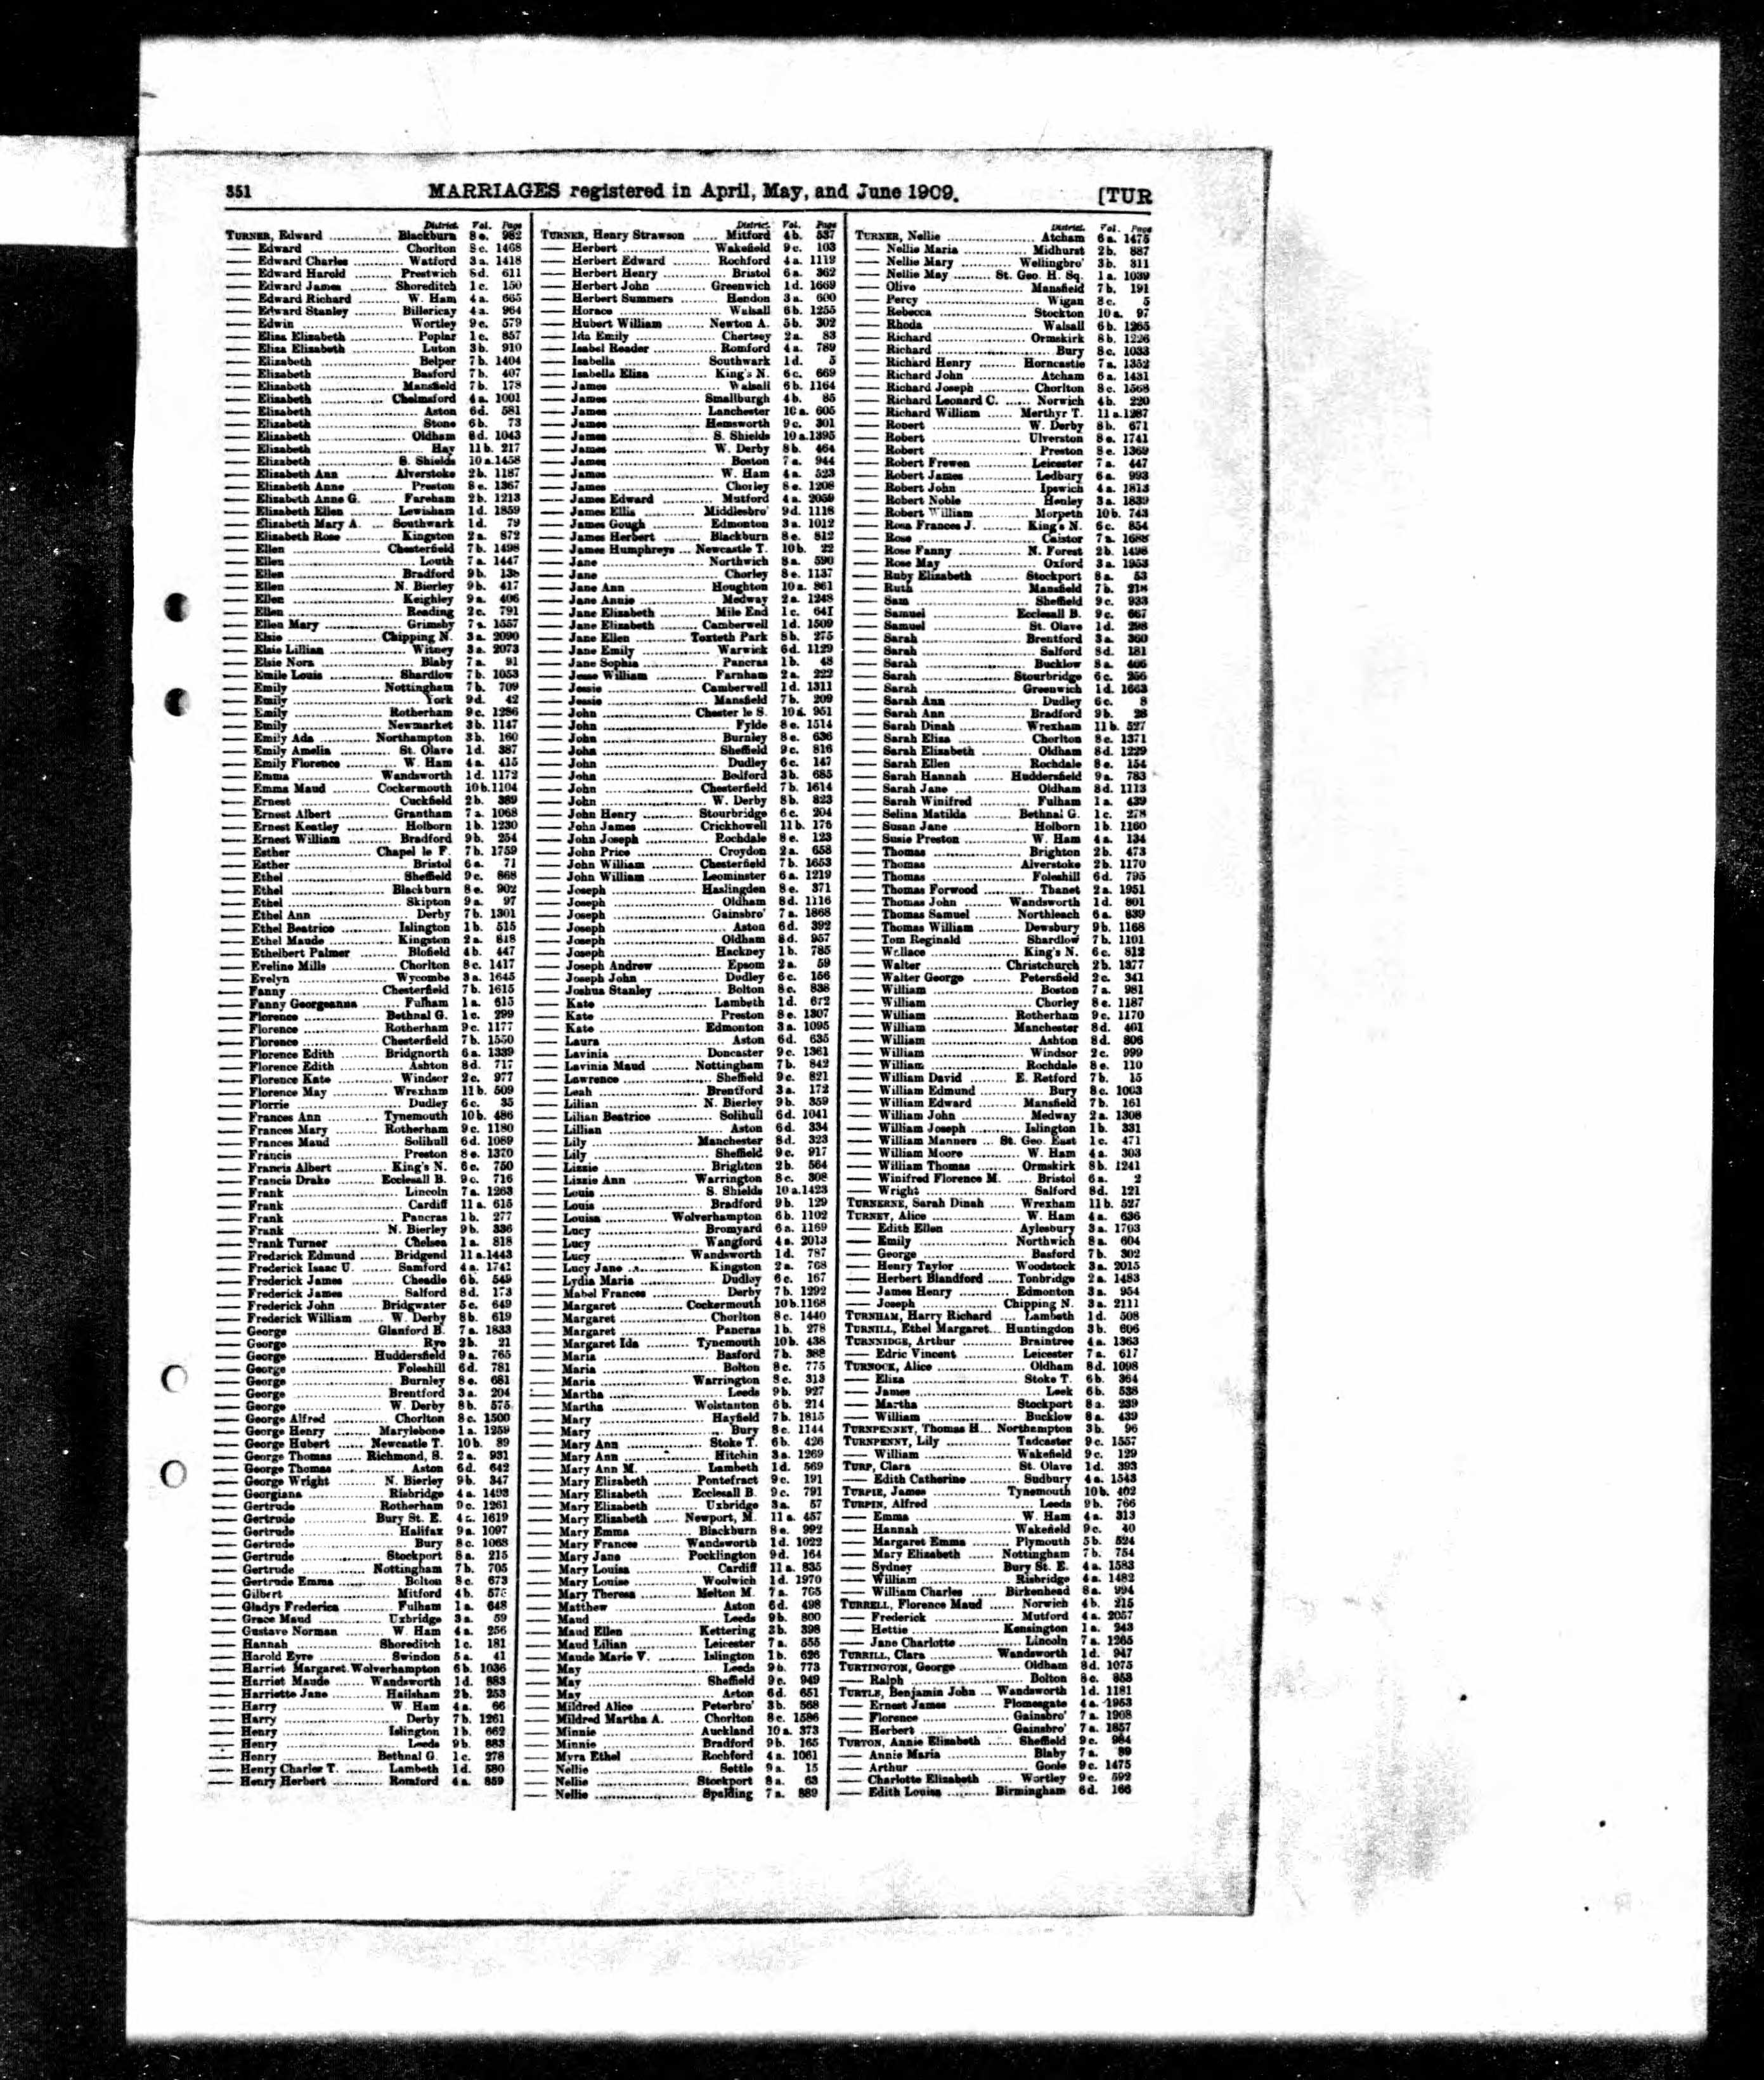 351 MARRIAGES registered in April, May, and June 1909. [TUR
District. Vol. Page
TURNER, Edward ............... Blackburn 8 e. 982
—— Edward ............... Chorlton 8 c. 1468
—— Edward Charles ............ Watford 3 a. 1418
—— Edward Harold ......... Prestwich 8 d. 611
—— Edward James ......... Shoreditch 1 c. 150
—— Edward Richard .......... W. Ham 4 a. 665
—— Edward Stanley .......... Billericay 4 a. 964
—— Edwin ............... Wortley 9 c. 579
—— Eliza Elizabeth ............... Poplar 1 c. 857
—— Eliza Elizabeth ............... Luton 3 b. 910
—— Elizabeth ............... Belper 7 b. 1404
—— Elizabeth ............... Basford 7 b. 407
—— Elizabeth ............... Mansfield 7 b. 178
—— Elizabeth ............... Chelmsford 4 a. 1001
—— Elizabeth ............... Aston 6 d. 581
—— Elizabeth ............... Stone 6 b. 73
—— Elizabeth ............... Oldham 8 d. 1043
—— Elizabeth ............... Hay 11 b. 217
—— Elizabeth ............... S. Shields 10 a. 1458
—— Elizabeth Ann ............ Alverstoke 2 b. 1187
—— Elizabeth Anne ............ Preston 8 e. 1367
—— Elizabeth Anne G. ....... Fareham 2 b. 1213
—— Elizabeth Ellen ......... Lewisham 1 d. 1859
—— Elizabeth Mary A. ... Southwark 1 d. 79
—— Elizabeth Rose ............ Kingston 2 a. 872
—— Ellen ............... Chesterfield 7 b. 1498
—— Ellen ............... Louth 7 a. 1447
—— Ellen ............... Bradford 9 b.
—— Ellen ............... N. Bierley 9 b. 417
—— Ellen ............... Keighley 9 a. 406
—— Ellen ............... Reading 2 c. 791
—— Ellen Mary ............... Grimsby 7 a. 1557
—— Elsie ............... Chipping N. 3 a. 2090
—— Elsie Lillian ............... Witney 3 a. 2073
—— Elsie Nora ............... Blaby 7 a. 91
—— Emile Louis ............... Shardlow 7 b. 1053
—— Emily ............... Nottingham 7 b. 709
—— Emily ............... York 9 d. 42
—— Emily ............... Rotherham 9 c. 1286
—— Emily ............... Newmarket 3 b. 1147
—— Emily Ada ............ Northampton 3 b. 160
—— Emily Amelia ............ St. Olave 1 d. 387
—— Emily Florence ............ W. Ham 4 a. 415
—— Emma ............... Wandsworth 1 d. 1172
—— Emma Maud ......... Cockermouth 10 b. 1104
—— Ernest ............... Cuckfield 2 b. 389
—— Ernest Albert ............ Grantham 7 a. 1068
—— Ernest Keatley ............ Holborn 1 b. 1230
—— Ernest William ............ Bradford 9 b. 254
—— Esther ............... Chapel le F. 7 b. 1759
—— Esther ............... Bristol 6 a. 71
—— Ethel ............... Sheffield 9 c. 868
—— Ethel ............... Blackburn 8 e. 902
—— Ethel ............... Skipton 9 a. 97
—— Ethel Ann ............... Derby 7 b. 1301
—— Ethel Beatrice ............ Islington 1 b. 515
—— Ethel Maude ............ Kingston 2 a. 818
—— Ethelbert Palmer ......... Blofield 4 b. 447
—— Eveline Mills ............ Chorlton 8 c. 1417
—— Evelyn ............... Wycombe 3 a. 1645
—— Fanny ............... Chesterfield 7 b. 1615
—— Fanny Georgeanna ......... Fulham 1 a. 615
—— Florence ............... Bethnal G. 1 c. 299
—— Florence ............... Rotherham 9 c. 1177
—— Florence ............... Chesterfield 7 b. 1550
—— Florence Edith ......... Bridgnorth 6 a. 1339
—— Florence Edith ............ Ashton 8 d. 717
—— Florence Kate ............ Windsor 2 c. 977
—— Florence May ............ Wrexham 11 b. 509
—— Florrie ............... Dudley 6 c. 35
—— Frances Ann ............ Tynemouth 10 b. 486
—— Frances Mary ............ Rotherham 9 c. 1180
—— Frances Maud ............ Solihull 6 d. 1089
—— Francis ............... Preston 8 e. 1370
—— Francis Albert ............ King's N. 6 c. 750
—— Francis Drake ......... Ecclesall B. 9 c. 716
—— Frank ............... Lincoln 7 a. 1263
—— Frank ............... Cardiff 11 a. 615
—— Frank ............... Pancras 1 b. 277
—— Frank ............... N. Bierley 9 b. 336
—— Frank Turner ............ Chelsea 1 a. 818
—— Frederick Edmund ....... Bridgend 11 a. 1443
—— Frederick Isaac U. ....... Samford 4 a. 1741
—— Frederick James ............ Cheadle 6 b. 549
—— Frederick James ............ Salford 8 d. 173
—— Frederick John ......... Bridgwater 5 c. 649
—— Frederick William ...... W. Derby 8 b. 619
—— George ............... Glanford B. 7 a. 1833
—— George ............... Rye 2 b. 21
—— George ............... Huddersfield 9 a. 765
—— George ............... Foleshill 6 d. 781
—— George ............... Burnley 8 e. 681
—— George ............... Brentford 3 a. 204
—— George ............... W. Derby 8 b. 575
—— George Alfred ............ Chorlton 8 c. 1500
—— George Henry ......... Marylebone 1 a. 1259
—— George Hubert ...... Newcastle T. 10 b. 89
—— George Thomas ...... Richmond, S. 2 a. 931
—— George Thomas ............ Aston 6 d. 642
—— George Wright ......... N. Bierley 9 b. 347
—— Georgiana ............... Risbridge 4 a. 1493
—— Gertrude ............... Rotherham 9 c. 1261
—— Gertrude ............... Bury St. E. 4 a. 1619
—— Gertrude ............... Halifax 9 a. 1097
—— Gertrude ............... Bury 8 c. 1068
—— Gertrude ............... Stockport 8 a. 215
—— Gertrude ............... Nottingham 7 b. 705
—— Gertrude Emma ............ Bolton 8 c. 673
—— Gilbert ............... Mitford 4 b.
—— Gladys Frederica ......... Fulham 1 a. 648
—— Grace Maud ............ Uxbridge 3 a. 59
—— Gustave Norman ......... W. Ham 4 a. 256
—— Hannah ............... Shoreditch 1 c. 181
—— Harold Eyre ............... Swindon 5 a. 41
—— Harriet Margaret. Wolverhampton 6 b. 1036
—— Harriet Maude ...... Wandsworth 1 d. 883
—— Harriette Jane ............ Hailsham 2 b. 253
—— Harry ............... W. Ham 4 a. 66
—— Harry ............... Derby 7 b. 1261
—— Henry ............... Islington 1 b. 662
—— Henry ............... Leeds 9 b. 883
—— Henry ............... Bethnal G. 1 c. 278
—— Henry Charles T. ......... Lambeth 1 d. 580
—— Henry Herbert ............ Romford 4 a. 859
District. Vol. Page
TURNER, Henry Strawson ...... Mitford 4 b. 537
—— Herbert ............... Wakefield 9 c. 103
—— Herbert Edward ......... Rochford 4 a. 1119
—— Herbert Henry ............ Bristol 6 a. 362
—— Herbert John ............ Greenwich 1 d. 1669
—— Herbert Summers ......... Hendon 3 a. 600
—— Horace ............... Walsall 6 b. 1255
—— Hubert William ......... Newton A. 5 b. 302
—— Ida Emily ............... Chertsey 2 a. 83
—— Isabel Reader ............... Romford 4 a. 789
—— Isabella ............... Southwark 1 d. 5
—— Isabella Eliza ............ King's N. 6 c. 669
—— James ............... Walsall 6 b. 1164
—— James ............... Smallburgh 4 b. 85
—— James ............... Lanchester 10 a. 605
—— James ............... Hemsworth 9 c. 301
—— James ............... S. Shields 10 a. 1395
—— James ............... W. Derby 8 b. 464
—— James ............... Boston 7 a. 944
—— James ............... W. Ham 4 a. 523
—— James ............... Chorley 8 e. 1208
—— James Edward ............ Mutford 4 a. 2059
—— James Ellis ............ Middlesbro' 9 d. 1118
—— James Gough ............ Edmonton 3 a. 1012
—— James Herbert ......... Blackburn 8 e. 812
—— James Humphreys ... Newcastle T. 10 b. 22
—— Jane ............... Northwich 8 a. 590
—— Jane ............... Chorley 8 e. 1137
—— Jane Ann ............... Houghton 10 a. 861
—— Jane Annie ............... Medway 2 a. 1248
—— Jane Elizabeth ............ Mile End 1 c. 641
—— Jane Elizabeth ......... Camberwell 1 d. 1509
—— Jane Ellen ............ Toxteth Park 8 b. 275
—— Jane Emily ............... Warwick 6 d. 1129
—— Jane Sophia ............... Pancras 1 b. 48
—— Jesse William ............ Farnham 2 a. 222
—— Jessie ............... Camberwell 1 d. 1311
—— Jessie ............... Mansfield 7 b. 209
—— John ............... Chester le S. 10 a. 951
—— John ............... Fylde 8 e. 1514
—— John ............... Burnley 8 e. 636
—— John ............... Sheffield 9 c. 816
—— John ............... Dudley 6 c. 147
—— John ............... Bedford 3 b. 685
—— John ............... Chesterfield 7 b. 1614
—— John ............... W. Derby 8 b. 823
—— John Henry ............ Stourbridge 6 c. 204
—— John James ............ Crickhowell 11 b. 175
—— John Joseph ............... Rochdale 8 e. 123
—— John Price ............... Croydon 2 a. 658
—— John William ......... Chesterfield 7 b. 1653
—— John William ......... Leominster 6 a. 1219
—— Joseph ............... Haslingden 8 e. 371
—— Joseph ............... Oldham 8 d. 1116
—— Joseph ............... Gainsbro' 7 a. 1868
—— Joseph ............... Aston 6 d. 392
—— Joseph ............... Oldham 8 d. 957
—— Joseph ............... Hackney 1 b. 785
—— Joseph Andrew ............ Epsom 2 a. 59
—— Joseph John ............... Dudley 6 c. 156
—— Joshua Stanley ............ Bolton 8 c. 838
—— Kate ............... Lambeth 1 d. 672
—— Kate ............... Preston 8 e. 1307
—— Kate ............... Edmonton 3 a. 1095
—— Laura ............... Aston 6 d. 635
—— Lavinia ............... Doncaster 9 c. 1361
—— Lavinia Maud ......... Nottingham 7 b. 842
—— Lawrence ............... Sheffield 9 c. 821
—— Leah ............... Brentford 3 a. 172
—— Lilian ............... N. Bierley 9 b. 359
—— Lilian Beatrice ............ Solihull 6 d. 1041
—— Lillian ............... Aston 6 d. 334
—— Lily ............... Manchester 8 d. 323
—— Lily ............... Sheffield 9 c. 917
—— Lizzie ............... Brighton 2 b. 564
—— Lizzie Ann ............ Warrington 8 c. 308
—— Louis ............... S. Shields 10 a. 1423
—— Louis ............... Bradford 9 b. 129
—— Louisa ............... Wolverhampton 6 b. 1102
—— Lucy ............... Bromyard 6 a. 1169
—— Lucy ............... Wangford 4 a. 2013
—— Lucy ............... Wandsworth 1 d. 787
—— Lucy Jane ............... Kingston 2 a. 768
—— Lydia Maria ............... Dudley 6 c. 167
—— Mabel Frances ............ Derby 7 b. 1292
—— Margaret ............... Cockermouth 10 b. 1168
—— Margaret ............... Chorlton 8 c. 1440
—— Margaret ............... Pancras 1 b. 278
—— Margaret Ida ......... Tynemouth 10 b. 438
—— Maria ............... Basford 7 b. 388
—— Maria ............... Bolton 8 c. 775
—— Maria ............... Warrington 8 c. 313
—— Martha ............... Leeds 9 b. 927
—— Martha ............... Wolstanton 6 b. 214
—— Mary ............... Hayfield 7 b. 1815
—— Mary ............... Bury 8 c. 1144
—— Mary Ann ............... Stoke T. 6 b. 426
—— Mary Ann ............... Hitchin 3 a. 1269
—— Mary Ann M. ............ Lambeth 1 d. 569
—— Mary Elizabeth ......... Pontefract 9 c. 191
—— Mary Elizabeth ......... Ecclesall B. 9 c. 791
—— Mary Elizabeth ......... Uxbridge 3 a. 57
—— Mary Elizabeth ...... Newport, M. 11 a. 457
—— Mary Emma ............ Blackburn 8 e. 992
—— Mary Frances ......... Wandsworth 1 d. 1022
—— Mary Jane ............ Pocklington 9 d. 164
—— Mary Louisa ............... Cardiff 11 a. 835
—— Mary Louise ............ Woolwich 1 d. 1970
—— Mary Theresa ......... Melton M. 7 a. 765
—— Matthew ............... Aston 6 d. 498
—— Maud ............... Leeds 9 b. 800
—— Maud Ellen ............ Kettering 3 b. 398
—— Maud Lilian ............ Leicester 7 a. 555
—— Maude Marie V. ......... Islington 1 b. 626
—— May ............... Leeds 9 b. 773
—— May ............... Sheffield 9 c. 949
—— May ............... Aston 6 d. 651
—— Mildred Alice ............ Peterbro' 3 b. 568
—— Mildred Martha A. ....... Chorlton 8 c. 1586
—— Minnie ............... Auckland 10 a. 373
—— Minnie ............... Bradford 9 b. 165
—— Myra Ethel ............... Rochford 4 a. 1061
—— Nellie ............... Settle 9 a. 15
—— Nellie ............... Stockport 8 a. 63
—— Nellie ............... Spalding 7 a. 889
District. Vol. Page
TURNER, Nellie ............... Atcham 6 a. 1475
—— Nellie Maria ............... Midhurst 2 b. 887
—— Nellie Mary ............ Wellingbro' 3 b. 311
—— Nellie May ......... St. Geo. H. Sq. 1 a. 1039
—— Olive ............... Mansfield 7 b. 191
—— Percy ............... Wigan 8 c. 5
—— Rebecca ............... Stockton 10 a. 97
—— Rhoda ............... Walsall 6 b. 1265
—— Richard ............... Ormskirk 8 b. 1226
—— Richard ............... Bury 8 c. 1033
—— Richard Henry ......... Horncastle 7 a. 1352
—— Richard John ............ Atcham 6 a. 1431
—— Richard Joseph ............ Chorlton 8 c. 1568
—— Richard Leonard C. ...... Norwich 4 b. 220
—— Richard William ...... Merthyr T. 11 a. 1287
—— Robert ............... W. Derby 8 b. 671
—— Robert ............... Ulverston 8 e. 1741
—— Robert ............... Preston 8 e. 1369
—— Robert Frewen ............ Leicester 7 a. 447
—— Robert James ............ Ledbury 6 a. 993
—— Robert John ............... Ipswich 4 a. 1813
—— Robert Noble ............ Henley 3 a. 1839
—— Robert William ............ Morpeth 10 b. 743
—— Rosa Frances J. ......... King's N. 6 c. 854
—— Rose ............... Caistor 7 a. 1688
—— Rose Fanny ............... N. Forest 2 b. 1498
—— Rose May ............... Oxford 3 a. 1953
—— Ruby Elizabeth ......... Stockport 8 a. 53
—— Ruth ............... Mansfield 7 b. 218
—— Sam ............... Sheffield 9 c. 933
—— Samuel ............... Ecclesall B. 9 c. 667
—— Samuel ............... St. Olave 1 d. 298
—— Sarah ............... Brentford 3 a. 360
—— Sarah ............... Salford 8 d. 181
—— Sarah ............... Bucklow 8 a. 406
—— Sarah ............... Stourbridge 6 c. 256
—— Sarah ............... Greenwich 1 d. 1663
—— Sarah Ann ............... Dudley 6 c. 8
—— Sarah Ann ............... Bradford 9 b. 28
—— Sarah Dinah ............ Wrexham 11 b. 527
—— Sarah Eliza ............... Chorlton 8 c. 1371
—— Sarah Elizabeth ............ Oldham 8 d. 1229
—— Sarah Ellen ............ Rochdale 8 e. 154
—— Sarah Hannah ....... Huddersfield 9 a. 783
—— Sarah Jane ............... Oldham 8 d. 1113
—— Sarah Winifred ............ Fulham 1 a. 439
—— Selina Matilda ......... Bethnal G. 1 c. 278
—— Susan Jane ............... Holborn 1 b. 1160
—— Susie Preston ............ W. Ham 4 a. 134
—— Thomas ............... Brighton 2 b. 473
—— Thomas ............... Alverstoke 2 b. 1170
—— Thomas ............... Foleshill 6 d. 795
—— Thomas Forwood ......... Thanet 2 a. 1951
—— Thomas John ......... Wandsworth 1 d. 801
—— Thomas Samuel ......... Northleach 6 a. 839
—— Thomas William ......... Dewsbury 9 b. 1168
—— Tom Reginald ............ Shardlow 7 b. 1101
—— Wallace ............... King's N. 6 c. 812
—— Walter ............... Christchurch 2 b. 1377
—— Walter George ......... Petersfield 2 c. 341
—— William ............... Boston 7 a. 981
—— William ............... Chorley 8 e. 1187
—— William ............... Rotherham 9 c. 1170
—— William ............... Manchester 8 d. 401
—— William ............... Ashton 8 d. 806
—— William ............... Windsor 2 c. 999
—— William ............... Rochdale 8 e. 110
—— William David ......... E. Retford 7 b. 15
—— William Edmund ............ Bury 8 c. 1003
—— William Edward ......... Mansfield 7 b. 161
—— William John ............ Medway 2 a. 1308
—— William Joseph ............ Islington 1 b. 331
—— William Manners ... St. Geo. East 1 c. 471
—— William Moore ............ W. Ham 4 a. 303
—— William Thomas ......... Ormskirk 8 b. 1241
—— Winifred Florence M. ...... Bristol 6 a. 2
—— Wright ............... Salford 8 d. 121
TURNERNE, Sarah Dinah ...... Wrexham 11 b. 527
TURNEY, Alice ............... W. Ham 4 a. 636
—— Edith Ellen ............ Aylesbury 3 a. 1703
—— Emily ............... Northwich 8 a. 604
—— George ............... Basford 7 b. 302
—— Henry Taylor ............ Woodstock 3 a. 2015
—— Herbert Blandford ...... Tonbridge 2 a. 1483
—— James Henry ............ Edmonton 3 a. 954
—— Joseph ............... Chipping N. 3 a. 2111
TURNHAM, Harry Richard .... Lambeth 1 d. 508
TURNILL, Ethel Margaret... Huntingdon 3 b. 606
TURNNIDGE, Arthur ............ Braintree 4 a. 1363
—— Edric Vincent ............ Leicester 7 a. 617
TURNOCK, Alice ............... Oldham 8 d. 1098
—— Eliza ............... Stoke T. 6 b. 364
—— James ............... Leek 6 b. 538
—— Martha ............... Stockport 8 a. 239
—— William ............... Bucklow 8 a. 439
TURNPENNEY, Thomas H... Northampton 3 b. 96
TURNPENNY, Lily ............ Tadcaster 9 c. 1557
—— William ............... Wakefield 9 c. 129
TURP, Clara ............... St. Olave 1 d. 393
—— Edith Catherine ............ Sudbury 4 a. 1543
TURPIE, James ............... Tynemouth 10 b. 402
TURPIN, Alfred ............... Leeds 9 b. 766
—— Emma ............... W. Ham 4 a. 313
—— Hannah ............... Wakefield 9 c. 40
—— Margaret Emma ......... Plymouth 5 b. 524
—— Mary Elizabeth ...... Nottingham 7 b. 754
—— Sydney ............... Bury St. E. 4 a. 1583
—— William ............... Risbridge 4 a. 1482
—— William Charles ...... Birkenhead 8 a. 994
TURRELL, Florence Maud ...... Norwich 4 b. 215
—— Frederick ............... Mutford 4 a. 2057
—— Hettie ............... Kensington 1 a. 243
—— Jane Charlotte ............ Lincoln 7 a. 1265
TURRILL, Clara ............ Wandsworth 1 d. 947
TURTINGTON, George ............ Oldham 8 d. 1075
—— Ralph ............... Bolton 8 c. 853
TURTLE, Benjamin John ... Wandsworth 1 d. 1181
—— Ernest James ......... Plomesgate 4 a. 1953
—— Florence ............... Gainsbro' 7 a. 1908
—— Herbert ............... Gainsbro' 7 a. 1857
TURTON, Annie Elizabeth ...... Sheffield 9 c. 984
—— Annie Maria ............... Blaby 7 a. 89
—— Arthur ............... Goole 9 c. 1475
—— Charlotte Elizabeth ...... Wortley 9 c. 592
—— Edith Louisa .......... Birmingham 6 d. 166